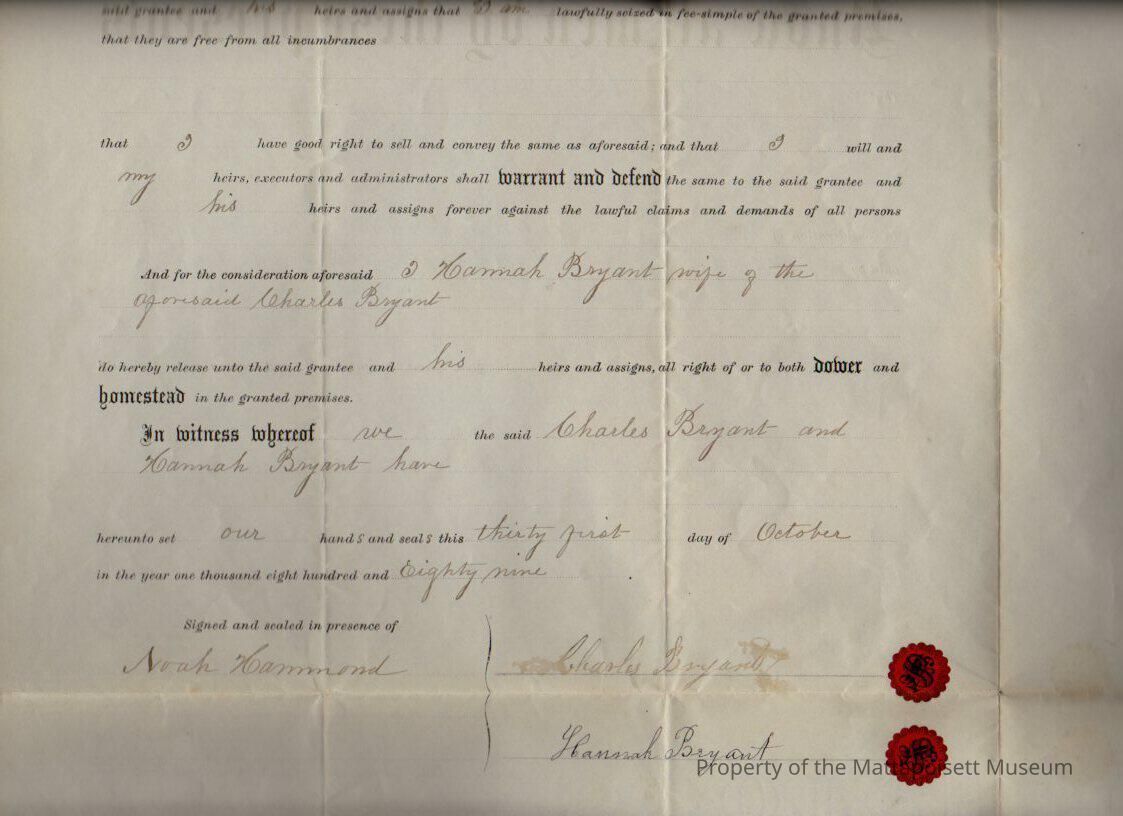 said grantee and his heirs and assigns that I am lawfully seized in fee-simple of the granted premises,
that they are free from all incumbrances
that I have good right to sell and convey the same as aforesaid; and that I will and
my heirs, executors and administrators shall warrant and defend the same to the said grantee and
his heirs and assigns forever against the lawful claims and demands of all persons
And for the consideration aforesaid I Hannah Bryant wife of the
aforesaid Charles Bryant
do hereby release unto the said grantee and his heirs and assigns, all right of or to both dower and
homestead in the granted premises.
In witness whereof we the said Charles Bryant and
Hannah Bryant have
hereunto set our hands and seals this thirty first day of October
in the year one thousand eight hundred and Eighty nine
Signed and sealed in presence of
Noah Hammond
Charles Bryant
Hannah Bryant
Property of the Mattapoisett Museum